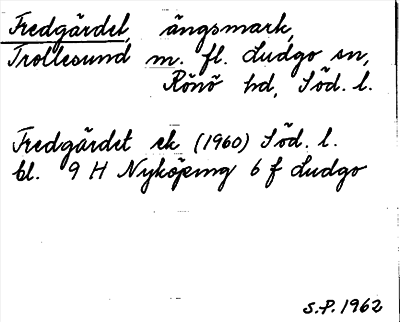 Fredgärdet, ängsmark,
Trollesund m. fl. Ludgo sn,
Rönö hd, Söd. l.
Fredgärdet ek (1960) Söd. l.
bl. 9 H Nyköping 6 f Ludgo
S.P. 1962